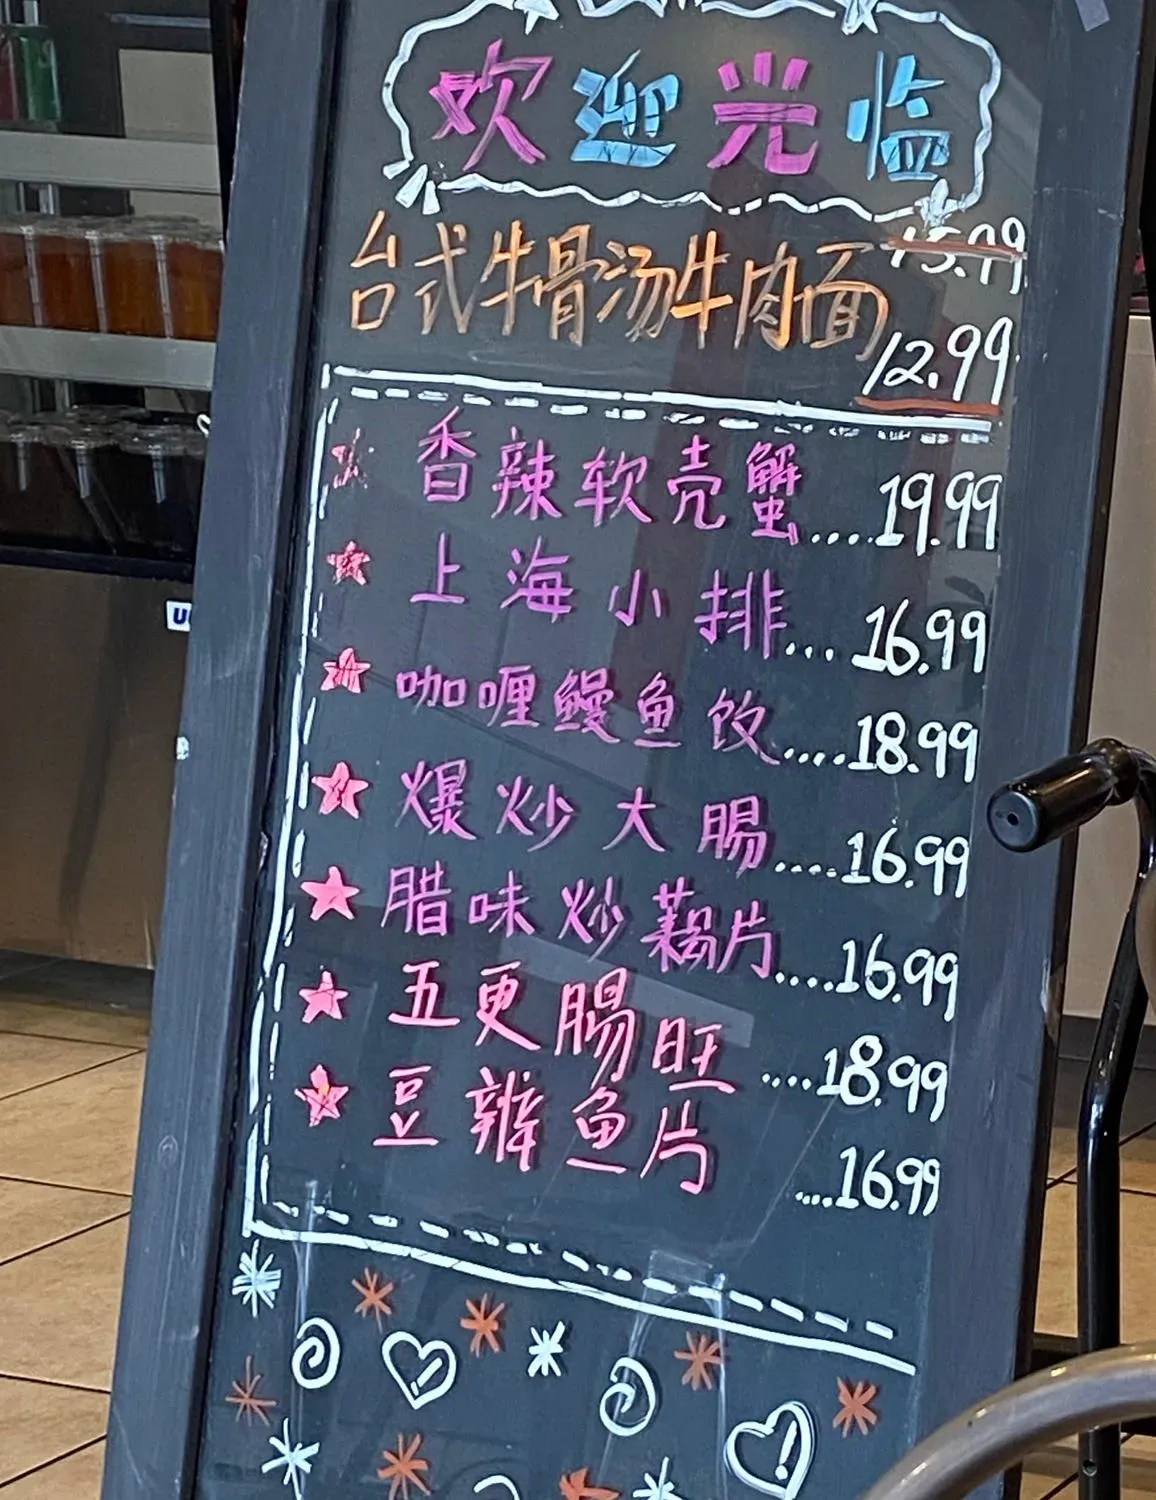 欢迎光临
台式牛骨汤牛肉面 15.99
12.99
香辣软壳蟹....19.99
上海小排...16.99
咖喱鳗鱼饮....18.99
爆炒大腸....16.99
腊味炒藕片....16.99
五更腸旺....18.99
豆瓣鱼片....16.99
U